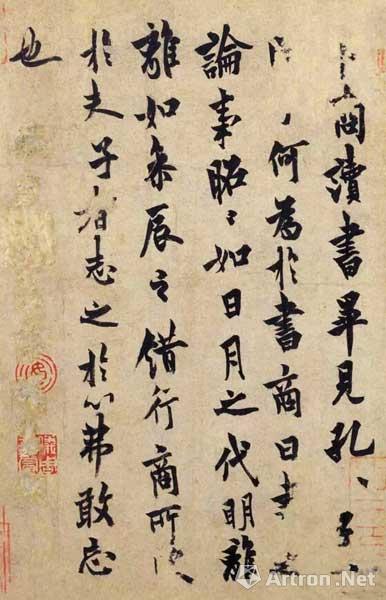 卜商讀書畢見孔〻子〻
何為於書商曰書
論事昭〻如日月之代明離
離如參辰之錯行商所受
於夫子者志之於心弗敢忘
也
Artron.Net